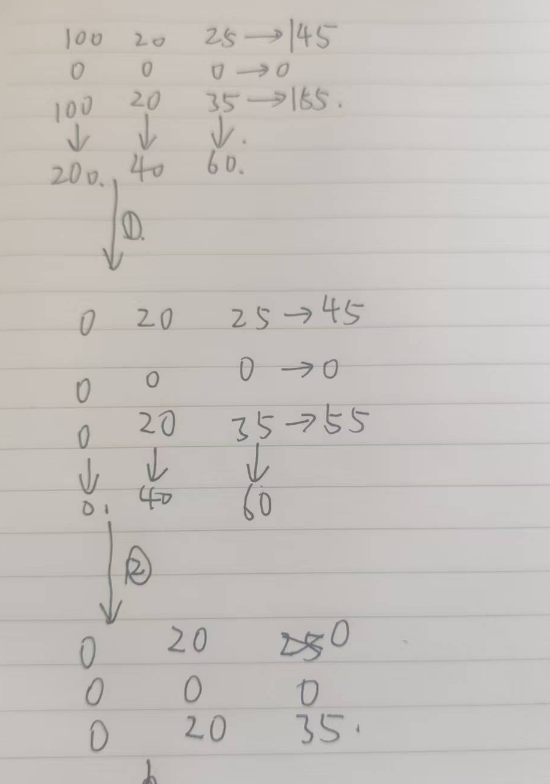 100 20 25 → 145
0 0 0 → 0
100 20 35 → 155.
↓ ↓ ↓.
200. 40 60.
↓ ①.
0 20 25 → 45
0 0 0 → 0
0 20 35 → 55
↓ ↓ ↓
0. 40 60
↓ ②
0 20 0
0 0 0
0 20 35.